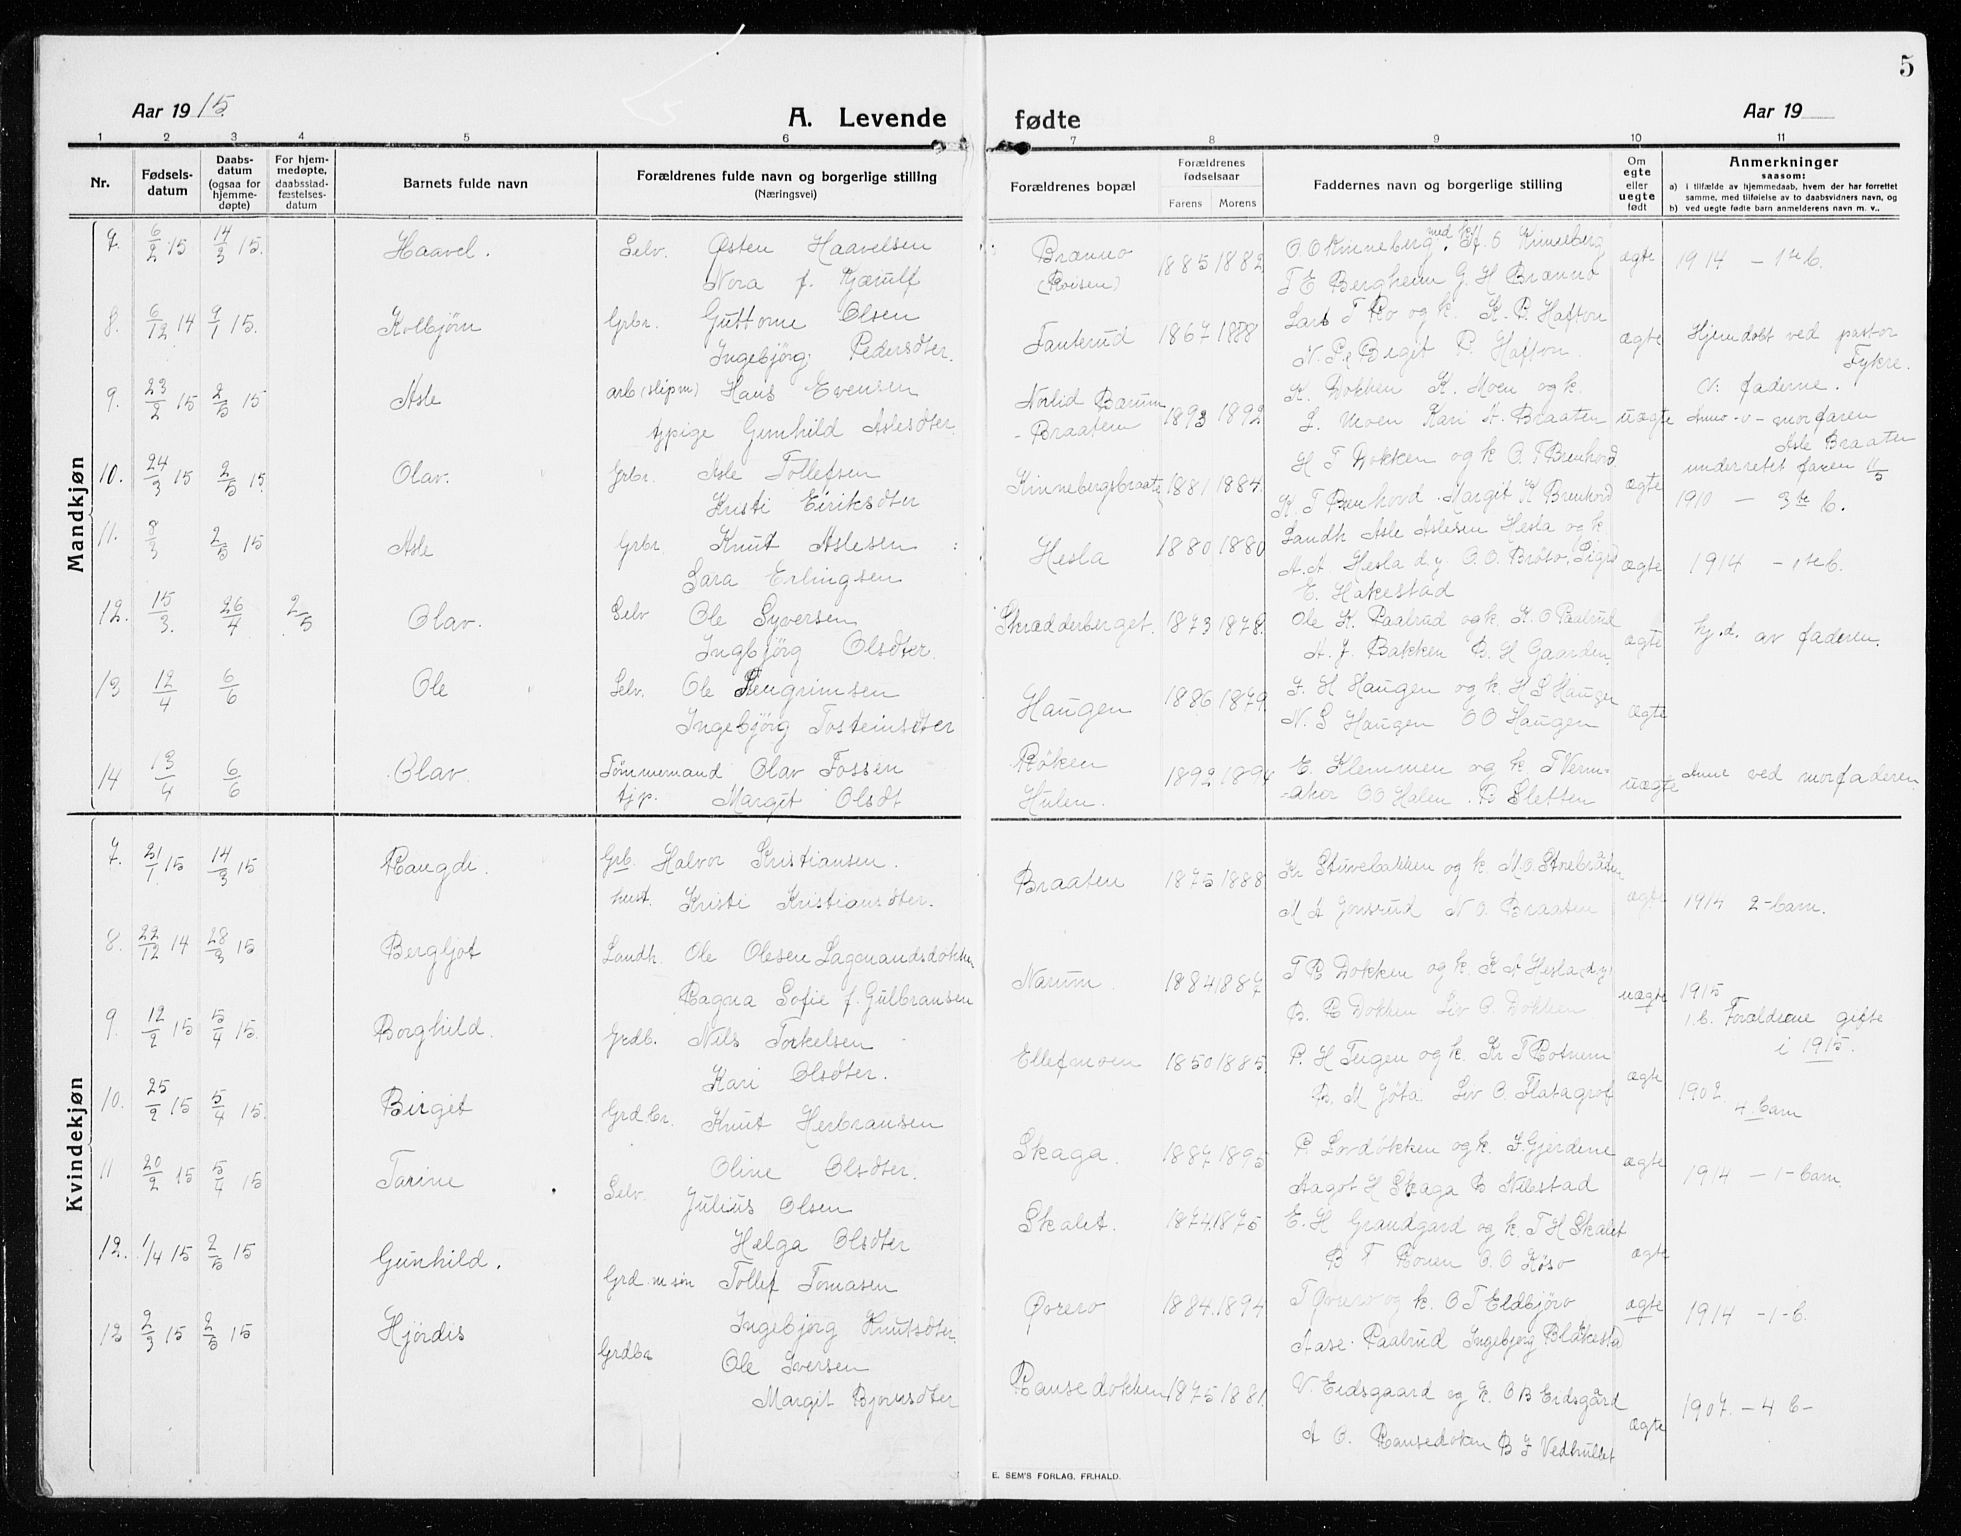 5
Aar 1915.
A. Levende
fødte
Aar 19
1 2 3 4 5 6 7 8 9 10 11
Nr.
Fødsels-
datum
Daabs-
datum
(ogsaa for
hjemme-
døpte)
For hjem-
medøpte,
daabsstad-
fæstelses-
datum
Barnets fulde navn
Forældrenes fulde navn og borgerlige stilling
(Næringsvei)
Forældrenes bopæl
Forældrenes
fødselsaar
Farens Morens
Faddernes navn og borgerlige stilling
Om
egte
eller
uegte
født
Anmerkninger
saasom:
a) i tilfælde av hjemmedaab, hvem der har forrettet
samme, med tilføielse av to daabsvidners navn, og
b) ved uegte fødte barn anmelderens navn m. v..
Mandkjøn
7. 6/2 15 14/3 15. Haavel. Selv. Østen Haavelsen
Nora f. Kjærulf
Brænno
(Roisen)
1885 1882
O O Kinneberg med k. O Kinneberg
T E Bergheim G H Brænno
ægte
1914 – 1ste b.
8. 6/12 14 9/1 15. Kolbjørn Grbr. Guttorm Olsen
Ingebjörg Pedersdter.
Fanterud 1867 1888
Lars T Ro og k. K. P. Hafton
N. P. Birgit P. Hafton.
ægte
Hjemdøbt ved pastor
Fykre.
9. 23/2 15 2/5 15 Asle arb (slipm) Hans Evensen
tjpige Gunhild Aslesdter.
Norlid Bærum
- Braaten
1893 1892
K. Dokken K. Moen og k.
Kari A. Braaten
uægte
v. faderne.
Anm. v– morfaren
Asle Braaten
underretet faren 11/5
10. 24/3 15 2/5 15. Olav. Grbr. Asle Tollefsen
Kristi Eiriksdter
Kinnebergsbraate 1881 1884.
H T Dokken og k O. T Brenhovd
K. T Brenhovd Margit K Brenhovd
ægte
1910 – 3te b.
11. 8/3 2/5 15 Asle Grbr. Knut Aslesen
Sara Erlingsen
Hesla 1880 1880
Landh Asle Aslesen Hesla og k
A. A. Hesla d.y. O. O. Bröto, Sigrd
E. Hakestad
ægte
1914 – 1ste b.
12. 15/3. 26/4 2/5 Olav. Selv Ole Syversen
Ingbjörg Olsdter.
Skrædderberget. 1873 1878.
Ole K. Paalrud og k. K. O Paalrud
A. J. Bakken B. H Gaarden
ægte
hj.d. av faderen.
13 12/4 6/6 Ole Selv. Ole Stengrimsen
Ingebjörg Tosteinsdter
Haugen 1886 1879
J. H Haugen og k. H S Haugen
N. S Haugen O O Haugen
ægte
14 13/4 6/6 Olav. Tömmermand Olav Fossen
tjp. Margit Olsdt
Röken
Hulen.
1892 1894
E. Klemmen og k. T Verm-
-aker O O Halen. B Sletten
uægte
Anm ved morfaderen.
Kvindekjøn
7. 21/1 15 14/3 15 Raugdi. Grb. Halvor Kristiansen.
hust. Kristi Kristiansdter.
Braaten 1875 1888.
Kr Stuvebakken og k. M. O. Storebraaten
M A Jonsrud N O. Braaten
ægte
1914 2-barn.
8. 22/12 14 28/3 15 Bergljot Landh. Ole Olesen Lagmandsdokken
Ragna Sofie f. Gulbransen
Narum. 1884 1887
T R Dokken og k. K A Hesla (d.y)
B. R Dokken Liv O. Dokken
uægte
1915
1.b. Forældrene gifte
i 1915.
9. 12/2 15 5/4 15. Borghild. Grdb. Nils Torkelsen
Kari Olsdter.
Ellefmoen 1850 1885.
P. H Teigen og k. Kr T Rotneim
B. M Jöta Liv O. Flatagrof
ægte
1902.
4. barn
10. 25/2 15 5/4 15. Birgit Grdbr. Knut Herbransen
Oline Olsdter.
Skaga. 1887 1895
P. Lovdøkken og k. J. Gjerdene
Aagot H Skaga B Nibstad
ægte
1914 – 1 – barn.
11 20/2 15 5/4 15 Tarine Selv. Julius Olsen
Helga Olsdter
Skalet. 1874. 1875
E. H Grandgard og k. T H Skalet
B T Roven O. O Köso
ægte
12. 1/4 15 2/5 15 Gunhild. Grd m sön Tollef Tomasen
Ingebjorg Knutsdter.
Övrevo 1884. 1894
T Övrevo og k. O T Eldbjörg
Aase Paalrud Ingebjorg Blakestad
ægte
1914 – 1 – b.
12 2/3 15 2/5 15 Hjördis Grdbr Ole Iversen
Margit Bjornsdter
Ransedokken 1875 1881.
V. Eidsgaard og k. O B Eidsgård
A O. Ransedoken B J Vedhullet
ægte
1907. – 4 b –
E. SEM'S FORLAG, FR.HALD.